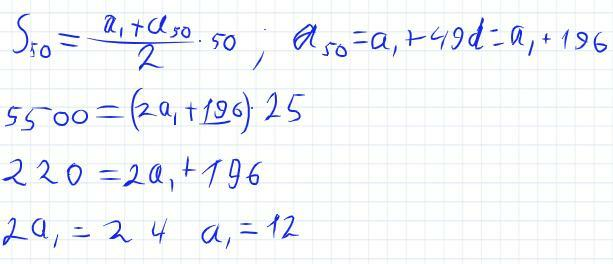 S₅₀ = (a₁ + a₅₀)/2 · 50 ; a₅₀ = a₁ + 49d = a₁ + 196
5500 = (2a₁ + 196) · 25
220 = 2a₁ + 196
2a₁ = 24 a₁ = 12